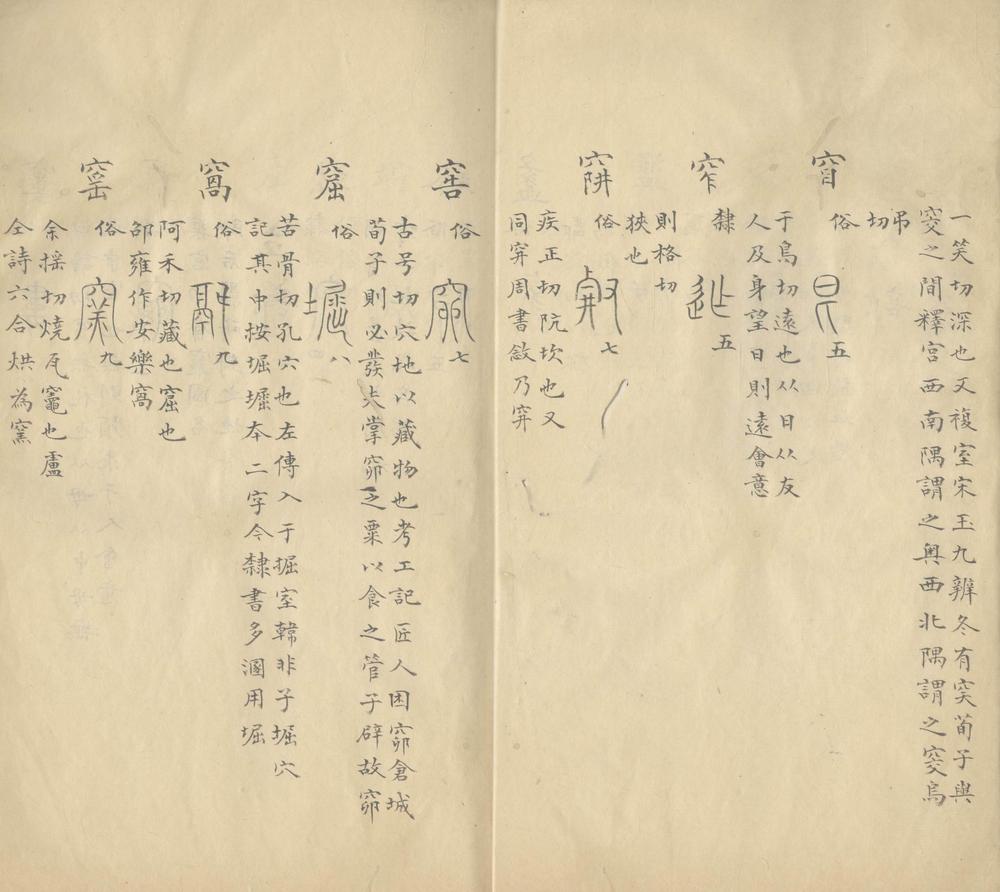 一笑切深也又複室宋玉九辨冬有突荀子與
窔之間釋宮西南隅謂之奥西北隅謂之窔烏
弔
切
窅
俗
五
于烏切遠也从日从友
人及身望日則遠會意
窄
隸
五
則格切
狹也
穽
俗
七
疾正切阬坎也又
同穽周書敜乃穽
窖
俗
七
古号切穴地以藏物也考工記匠人囷窌倉城
荀子則必發夫掌窌之粟以食之管子辟故窌
窟
俗
堀
八
苦骨切孔穴也左傳入于掘室韓非子堀穴
記其中按堀堀夲二字今隸書多溷用堀
窩
俗
九
阿禾切藏也窟也
邵雍作安樂窩
窑
俗
窯
九
余摇切燒瓦竈也盧
仝詩六合烘為窯